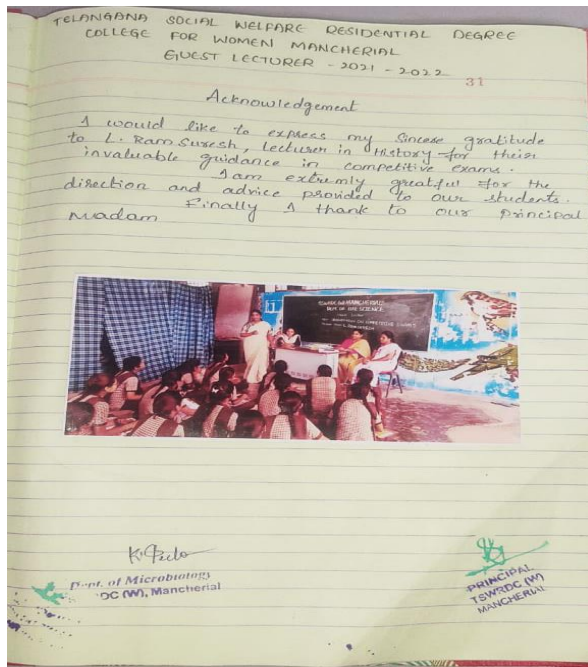 TELANGANA SOCIAL WELFARE RESIDENTIAL DEGREE
COLLEGE FOR WOMEN MANCHERIAL
GUEST LECTURER - 2021 - 2022
31
Acknowledgement
I would like to express my Sincere gratitude
to L. Ram Suresh, Lecturer in History for their
invaluable guidance in competitive exams.
I am extremly greatful for the
direction and advice provided to our students.
Finally I thank to our principal
Madam
DEPT OF LIFE SCIENCE
Dept. of Microbiology
DC (W), Mancherial
PRINCIPAL
TSWRDC (W)
MANCHERIAL